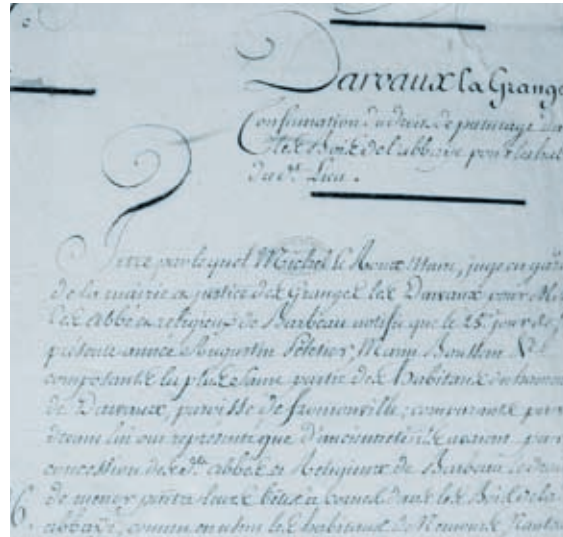 Darvaux la Grange
Confirmation du droit de pannage da
les Bois de l'abbaye pour les hab
du d.t Lieu.
Titre par lequel Michel le Roux Maire, juge en ga
de la mairie et justice des Granges les Darvaux pour M
les Abbé et religieux de Barbeau notifie que le 25.e jour de
présente année Augustin Peletier, Manin
composante la plus saine partie des habitans du hameau
de Darvaux, paroisse de fromonville, comparants par
devant lui ont représenté que d'ancienneté ils avoient par
concession des d.ts abbés et Religieux de Barbeau le droit
6. de mener paitre leurs bêtes à cornes dans les Bois de la
abbaye, comme en usent les habitans de Nemours, Nanteau